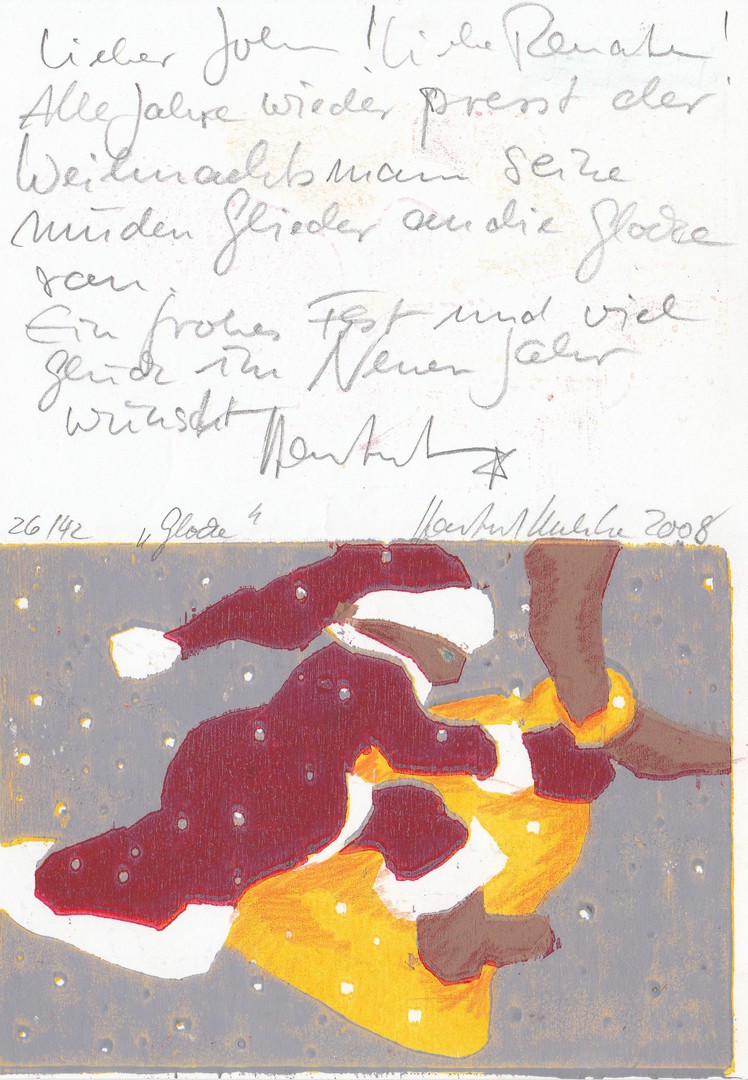 Lieber John! Liebe Renate!
Alle Jahre wieder presst der
Weihnachtsmann seine
müden Glieder an die Glocke
ran.
Ein frohes Fest und viel
Glück im Neuen Jahr
wünscht Hartmut
26/42 „Glocke“ Hartmut 2008